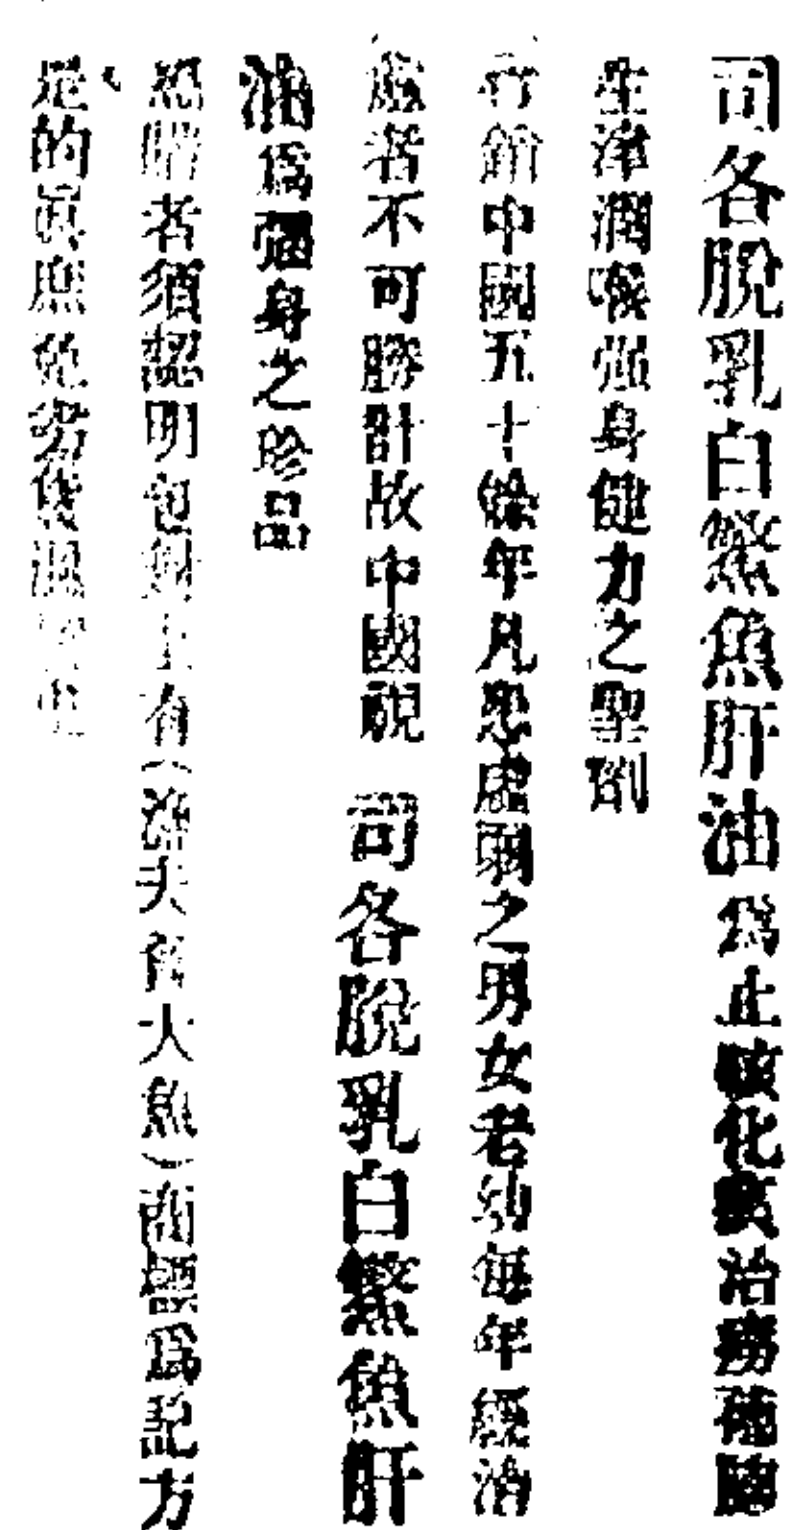 司各脫乳白鰵魚肝油為止咳化痰治癆補肺
生津潤喉強身健力之聖劑
行銷中國五十餘年凡患虛弱之男女老幼每年經治
愈者不可勝計故中國視 司各脫乳白鰵魚肝
油為強身之珍品
賜購者須認明包封上有(漁夫負大魚)商標為記方
是的真庶免劣貨混